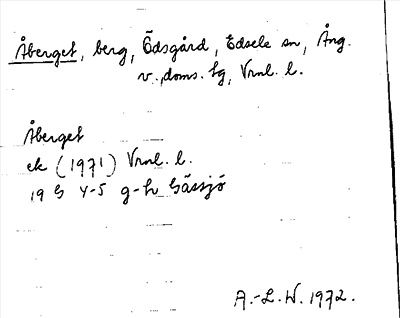 Åberget, berg, Ödsgård, Edsele sn, Ång.
v., doms. tg, Vrnl. l.
Åberget
ek (1971) Vrnl. l.
19 G 4-5 g-h Gåssjö
A.-L. W. 1972.